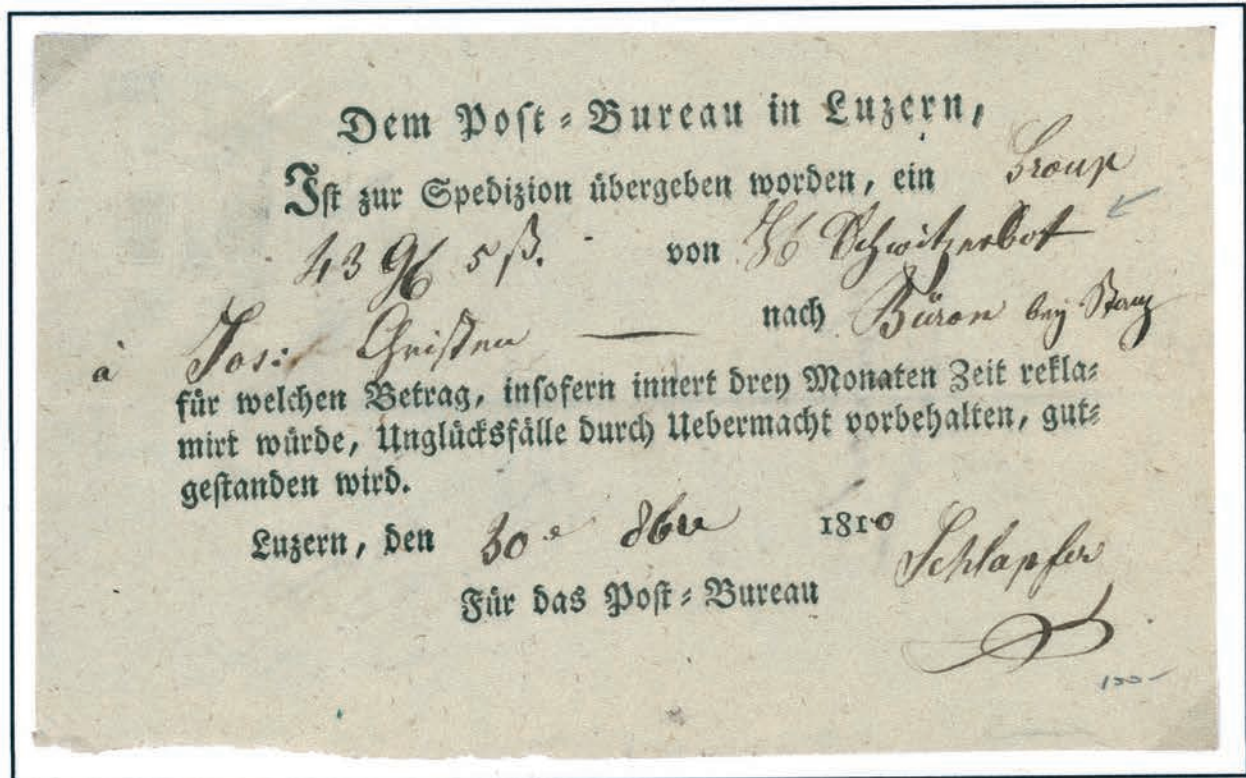 Dem Post-Bureau in Luzern,
Ist zur Spedizion übergeben worden, ein Group
43 5 ß. von Schwitzerbot
à Jos: Christen nach Büron bey Stanz
für welchen Betrag, insofern innert drey Monaten Zeit rekla-
mirt würde, Unglücksfälle durch Uebermacht vorbehalten, gut-
gestanden wird.
Luzern, den 30 8bre 1810
Für das Post-Bureau Schlapfer
100-